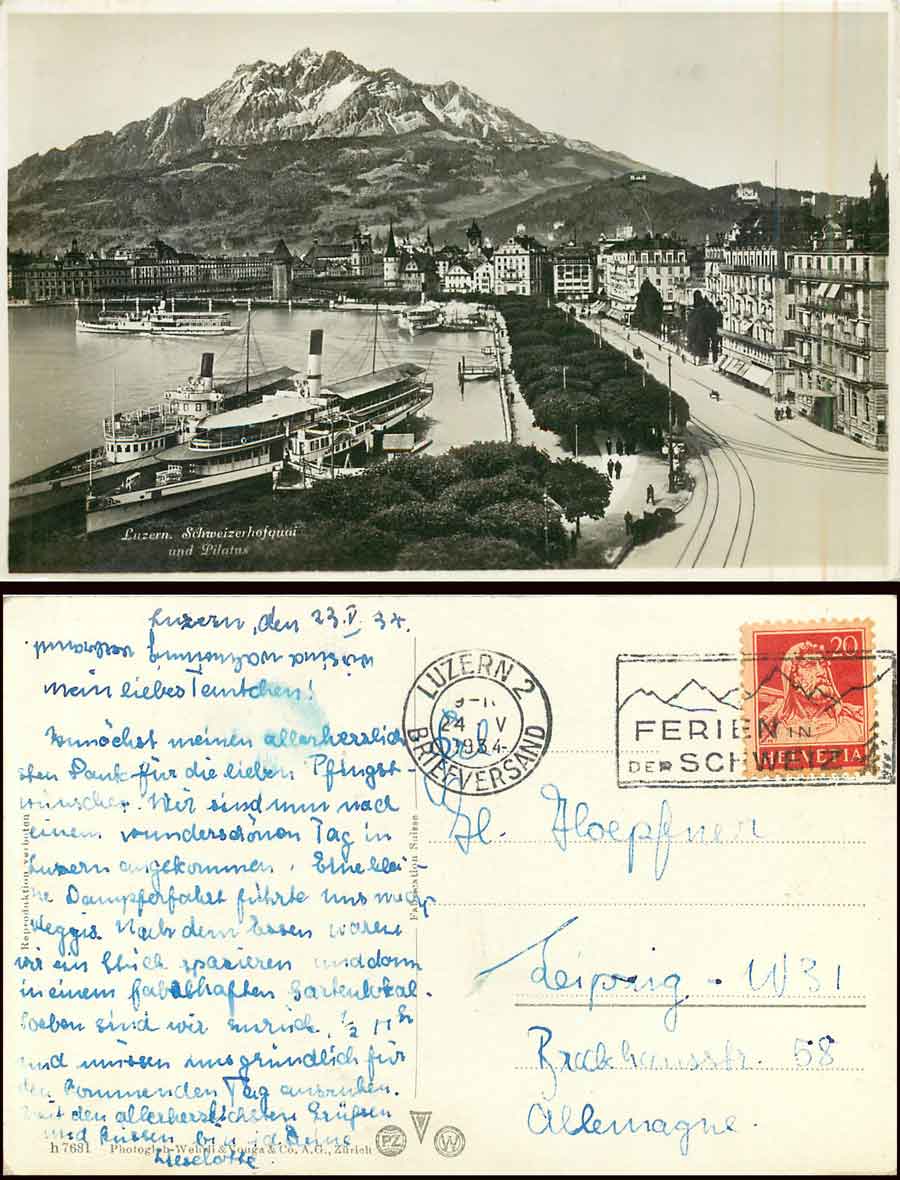 Luzern. Schweizerhofquai
und Pilatus
Luzern, den 23.V.34.
mein liebes Tentchen!
Zunächst meinen allerherzlich
sten Dank für die lieben Pfingst-
wünsche. Wir sind nun nach
einem wunderschönen Tag in
Luzern angekommen. Eine klei-
ne Dampferfahrt führte uns nach
Weggis. Nach dem Essen waren
wir ein Stück spazieren und dann
in einem fabelhaften Gartenlokal.
Soeben sind wir zurück, 1/2 11 Uhr
und müssen uns gründlich für
den kommenden Tag ausruhen.
Mit den allerherzlichsten Grüßen
und Küssen bin ich Deine
Lieselotte.
LUZERN 2
24 V
1934
BRIEFVERSAND
FERIEN IN
DER SCHWEIZ
20
HELVETIA
Hoepfner
Leipzig - W 31
Brockhausstr. 58
Allemagne.
Reproduktion verboten
Fabrication Suisse
h 7631 Photoglob-Wehrli & Vouga & Co. A.G., Zürich
PZ
W